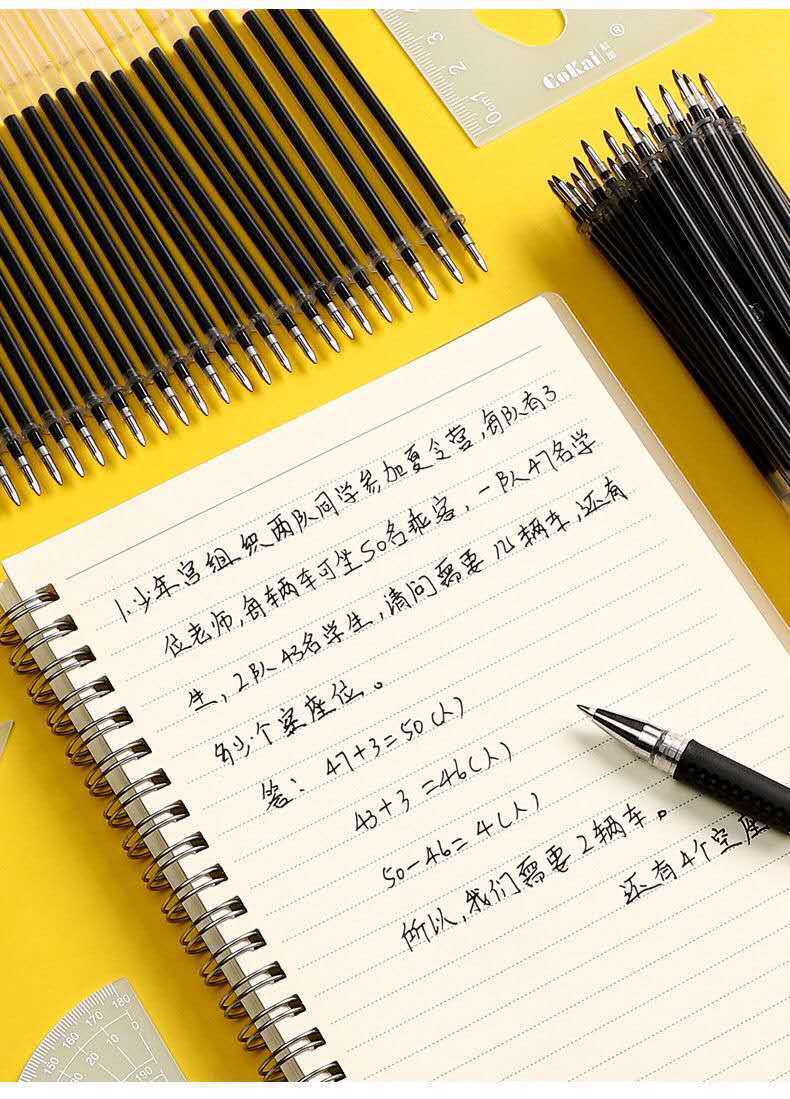 3
2
0cm1
CoKai ®
1.少年宫组织两队同学参加夏令营,每队有3
位老师,每辆车可坐50名乘客,一队47名学
生,2队43名学生,请问需要几辆车,还有
多少个空座位。
答: 47+3=50(人)
43+3=46(人)
50-46=4(人)
所以,我们需要2辆车。
还有4个空座
180
170
160
150
0
10
20
180
190